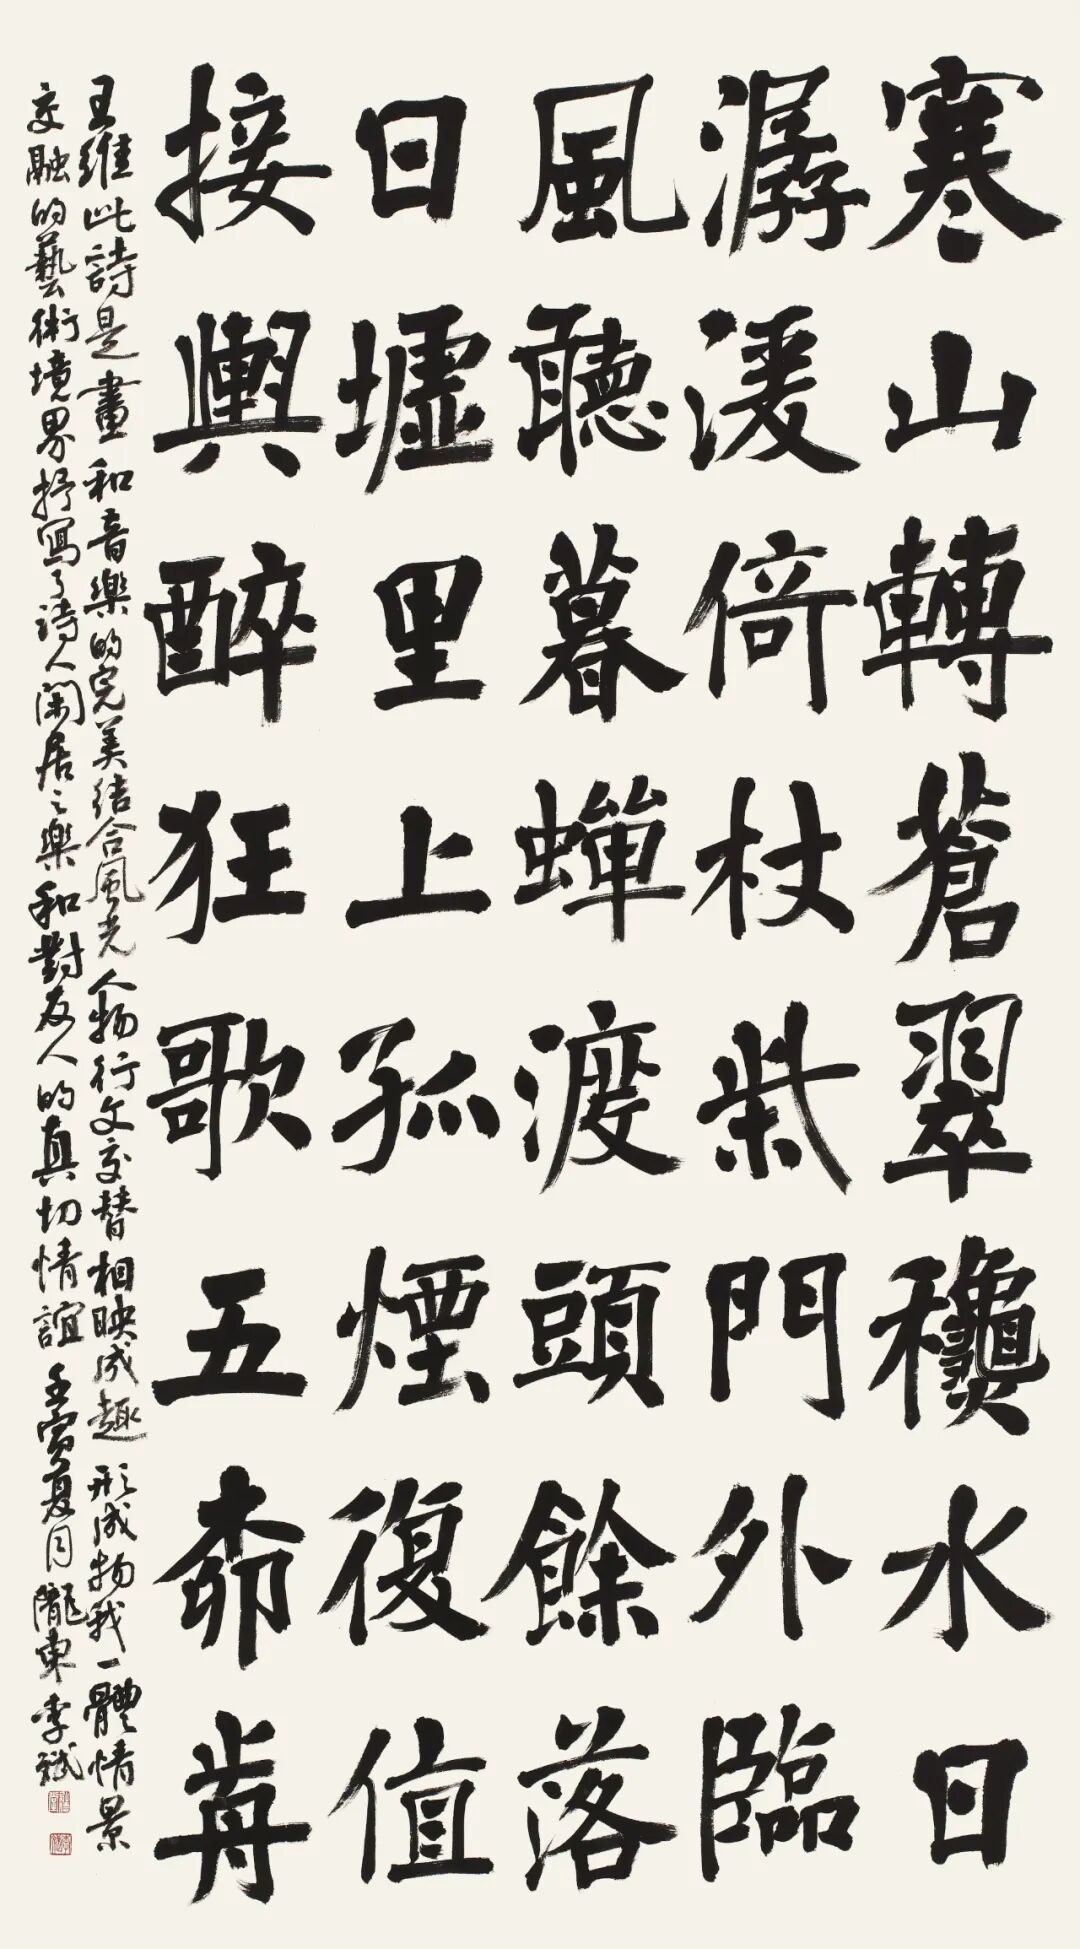 寒山轉蒼翠龝水日
潺湲倚杖柴門外臨
風聽暮蟬渡頭餘落
日墟里上孤煙復值
接輿醉狂歌五桺歬
王維此詩是畫和音樂的完美結合風光人物行文交替相映成趣形成物我一體情景
交融的藝術境界抒寫了詩人閑居之樂和對友人的真切情誼壬寅夏月隴東李斌